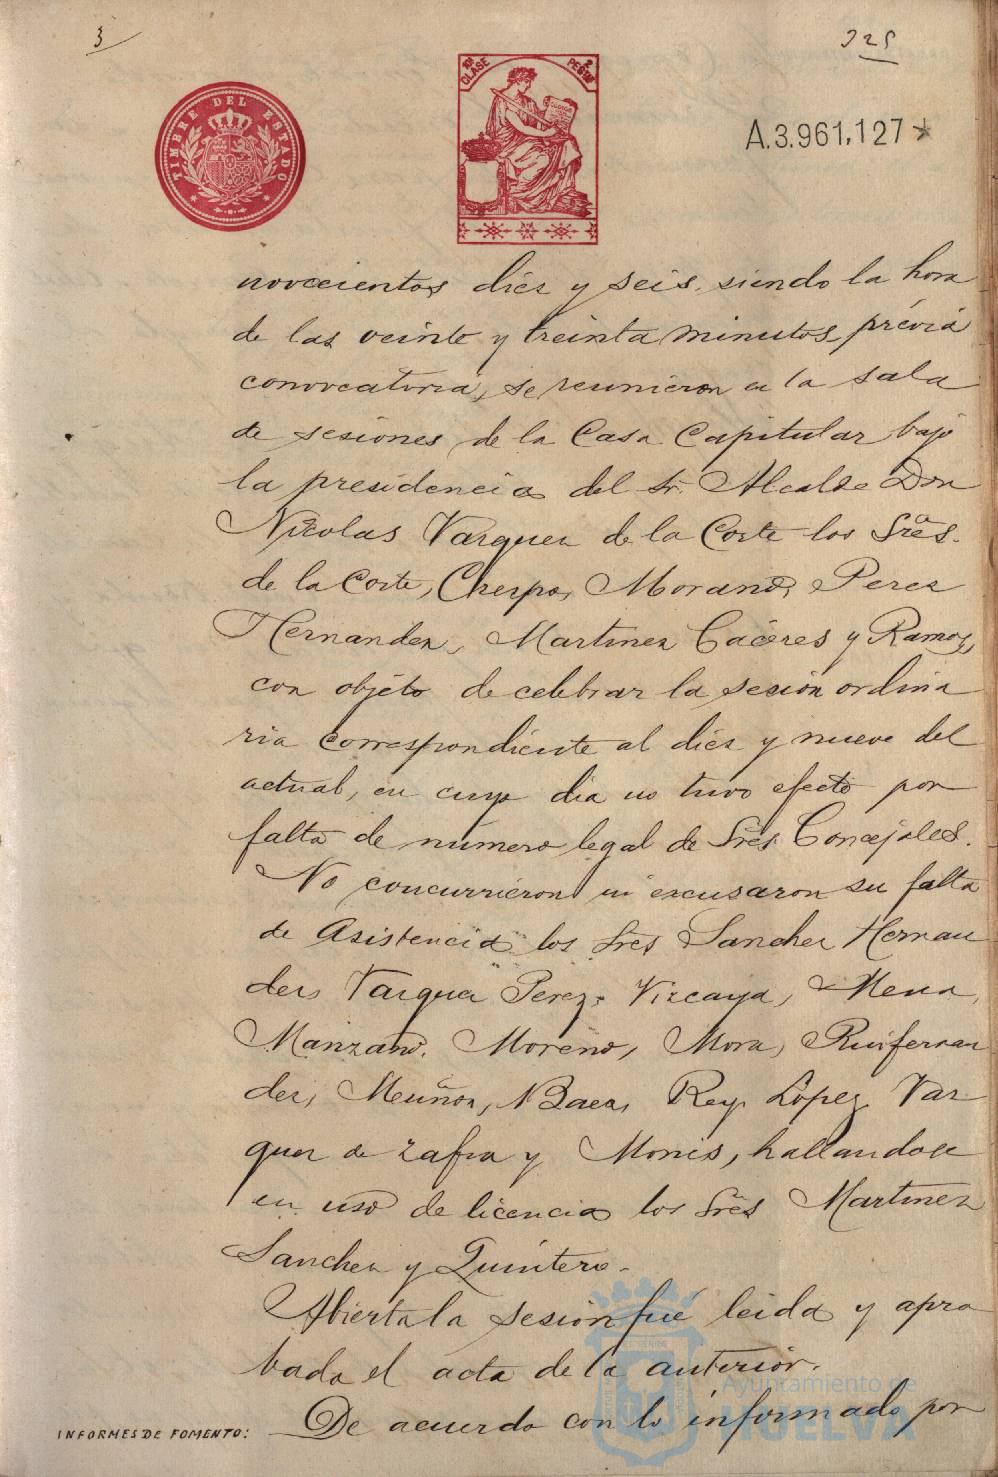 3
325
TIMBRE DEL ESTADO
10ª CLASE
2 PESTAS
A.3.961,127*
novecientos diez y seis, siendo la hora
de las veinte y treinta minutos, prévia
convocatoria, se reunieron en la sala
de sesiones de la Casa Capitular bajo
la presidencia del Sr. Alcalde Don
Nicolas Vazquez de la Corte los Sres.
de la Corte, Cherpo, Morano, Perez
Hernandez, Martinez Cáceres y Ramos,
con objéto de celebrar la sesion ordina
ria correspondiente al diez y nueve del
actual, en cuyo dia no tuvo efecto por
falta de número legal de Sres Concejales.
No concurrieron ni excusaron su falta
de Asistencia los Sres Sanchez Hernan
dez, Vazquez Perez, Vizcaya, Mena,
Manzano, Moreno, Mora, Ruifernan
dez, Muñoz, Baez, Rey, Lopez, Vaz
quez de Zafra y Monis, hallandose
en uso de licencia los Sres Martinez
Sanchez y Quintero.
Abierta la sesion fué leida y apro
bada el acta de la anterior.
INFORMES DE FOMENTO: De acuerdo con lo informado por
Ayuntamiento de
HUELVA